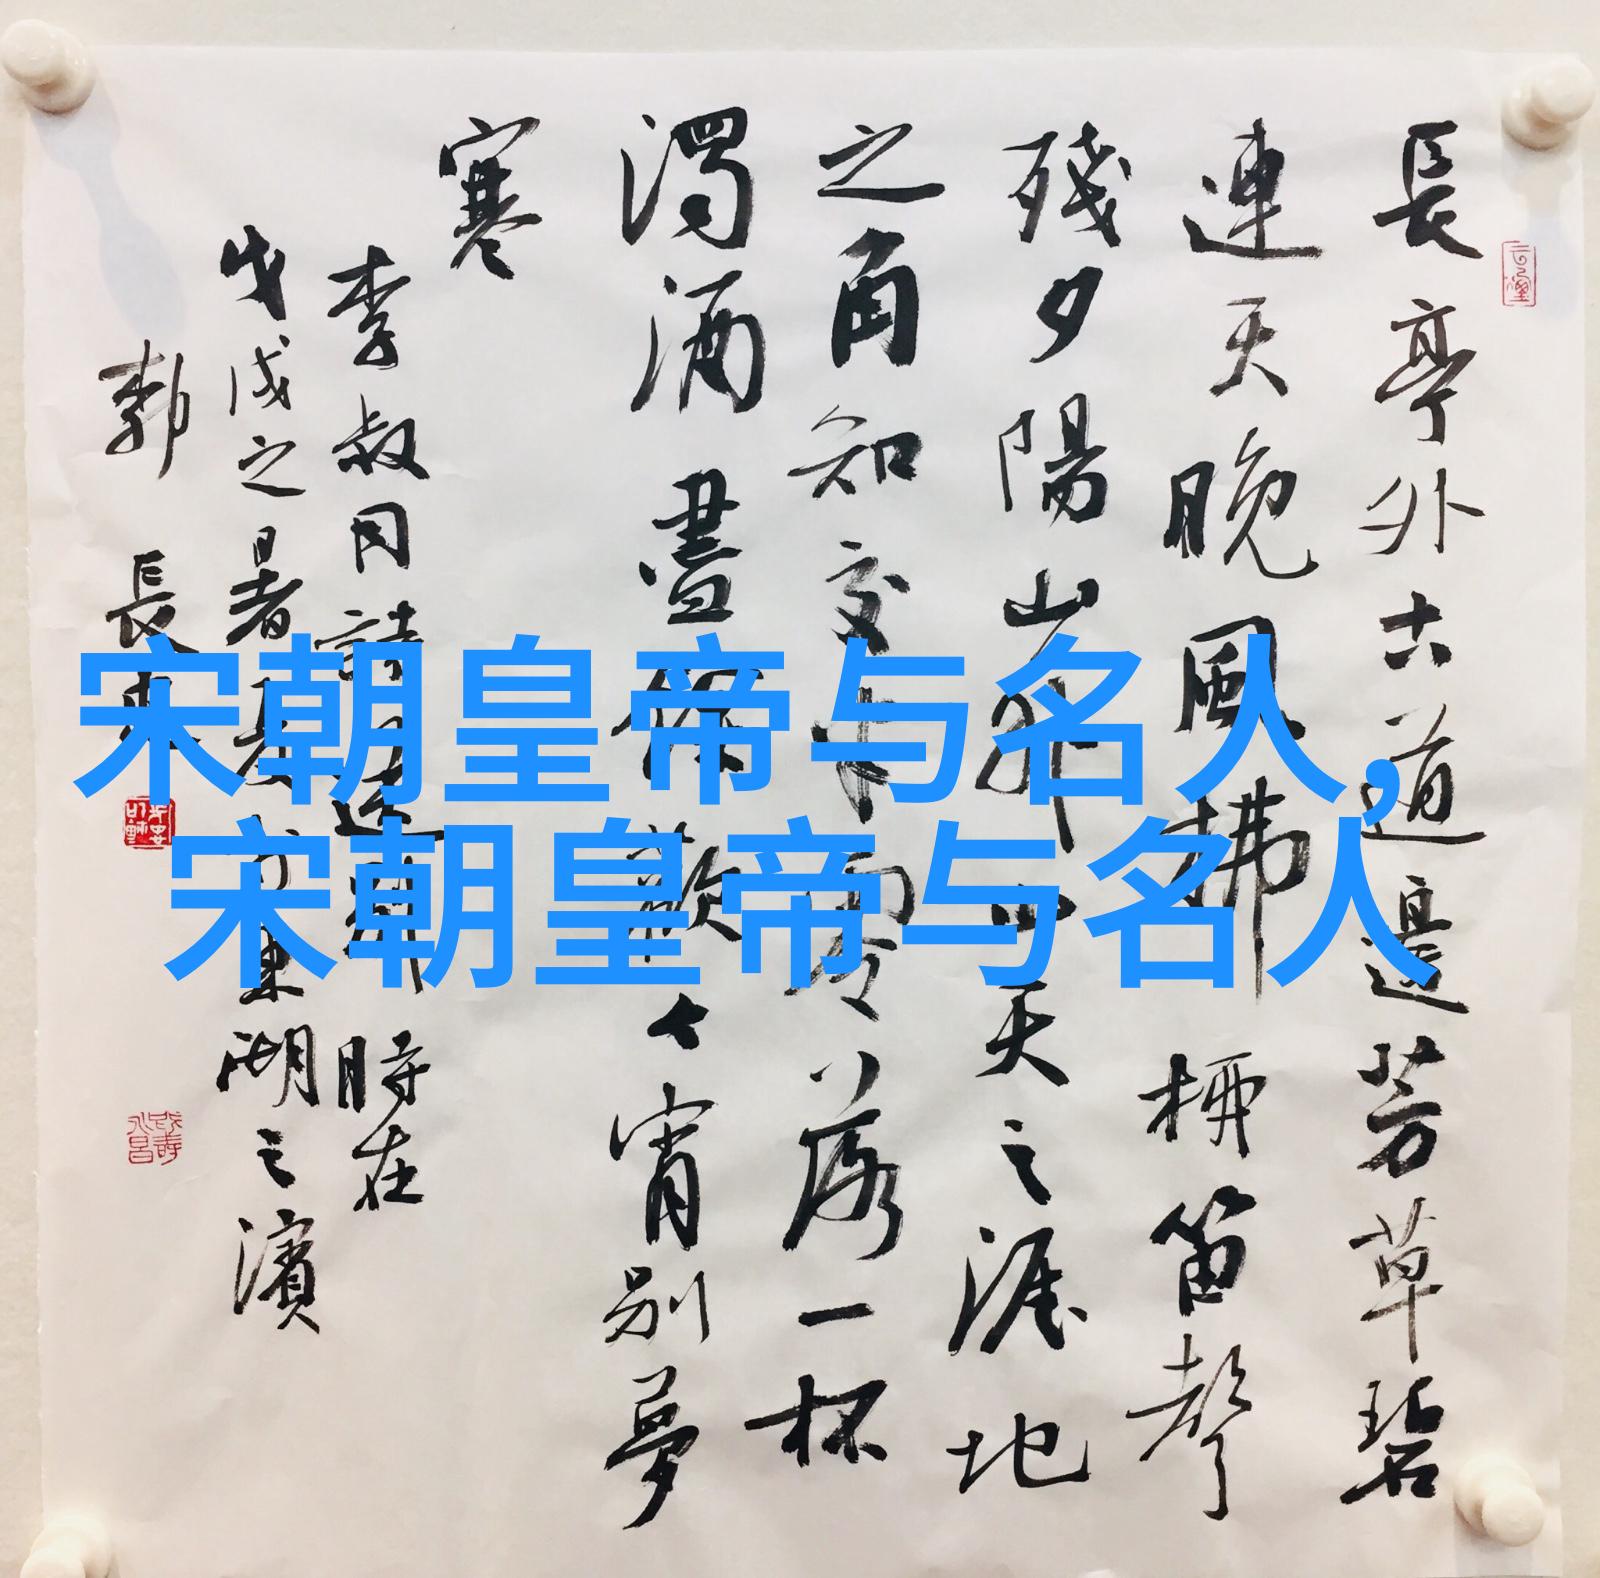 宋朝皇帝与名人,
宋朝皇帝与名人
長亭外古道邊芳草碧
連天晚風拂柳笛聲
殘夕陽山外山天之涯地
之角知交半零落一杯
濁酒盡餘歡今宵別夢
寒
李叔同詩送別時在
戊戌之暑東湖之濱
長